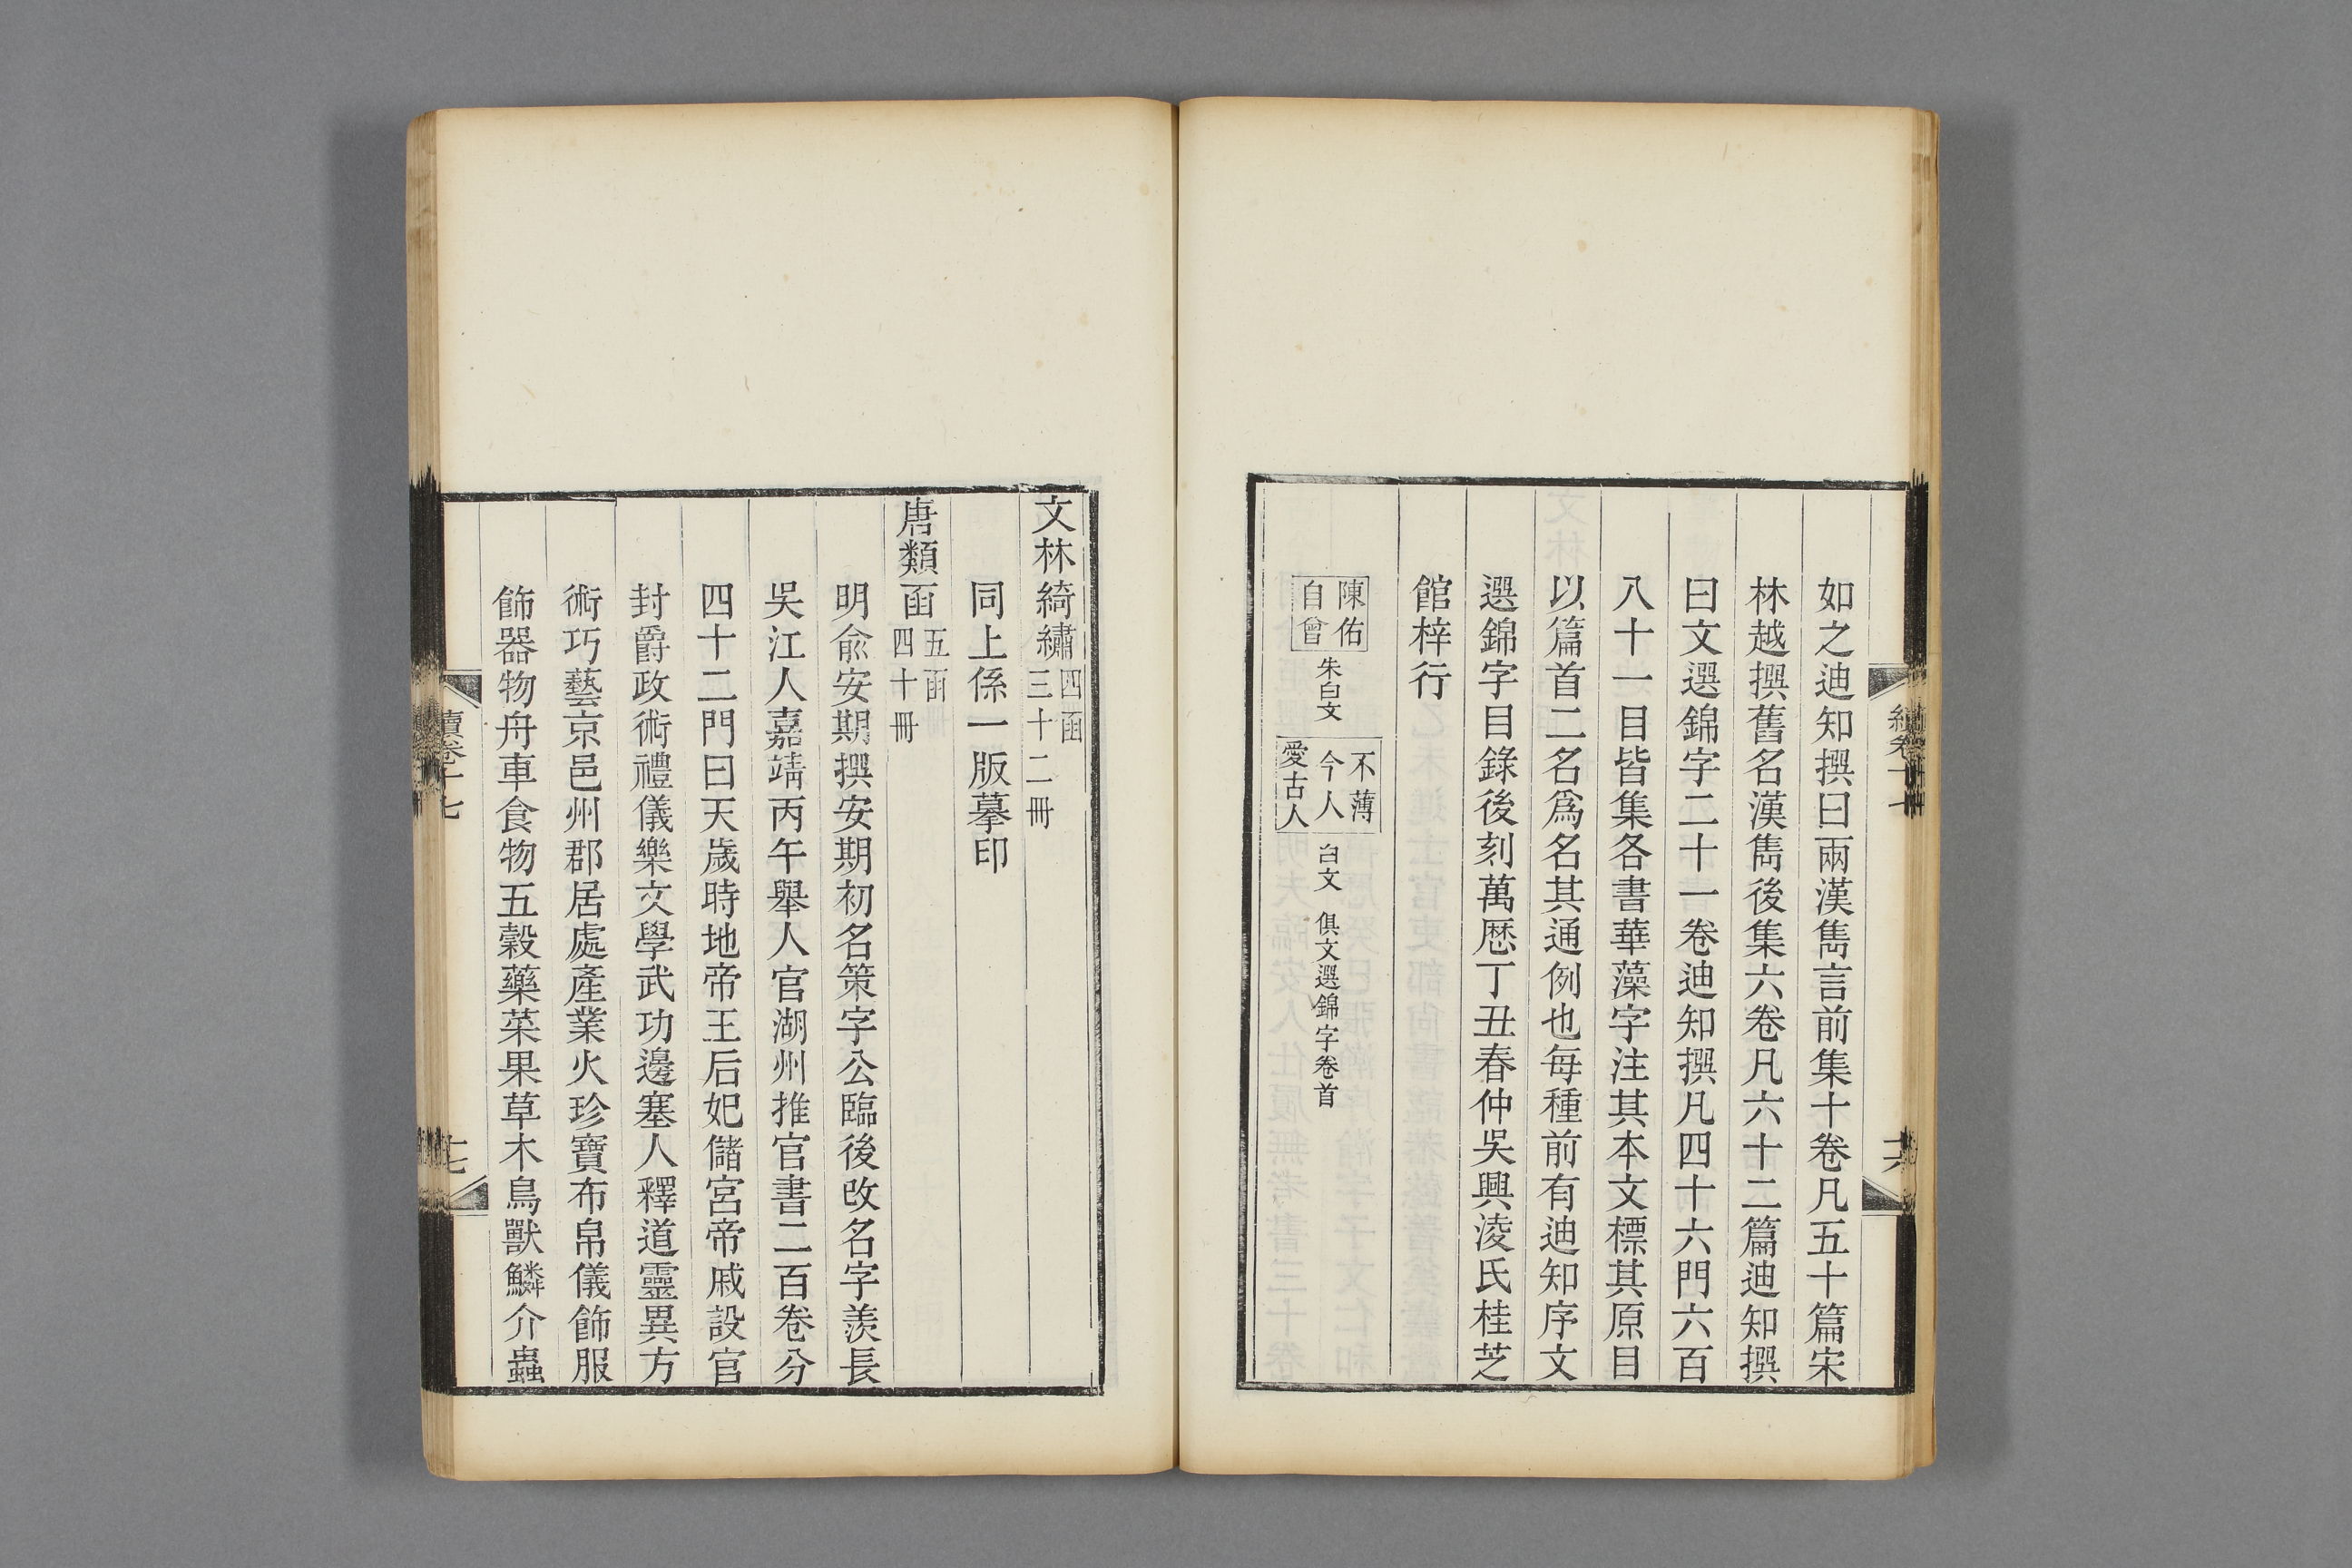 如之迪知撰曰兩漢雋言前集十卷凡五十篇宋
林越撰舊名漢雋後集六卷凡六十二篇迪知撰
曰文選錦字二十一卷迪知撰凡四十六門六百
八十一目皆集各書華藻字注其本文標其原目
以篇首二名爲名其通例也每種前有迪知序文
選錦字目錄後刻萬厯丁丑春仲吳興淩氏桂芝
館梓行
陳佑
自曾
朱白文
不薄
今人
愛古人
白文
俱文選錦字卷首
續卷十七
十六
文林綺繡
四函
三十二冊
同上係一版摹印
唐類函
五函
四十冊
明兪安期撰安期初名策字公臨後改名字羨長
吳江人嘉靖丙午舉人官湖州推官書二百卷分
四十二門曰天歲時地帝王后妃儲宮帝戚設官
封爵政術禮儀樂文學武功邊塞人釋道靈異方
術巧藝京邑州郡居處產業火珍寶布帛儀飾服
飾器物舟車食物五穀藥菜果草木鳥獸鱗介蟲
續卷十七
十七